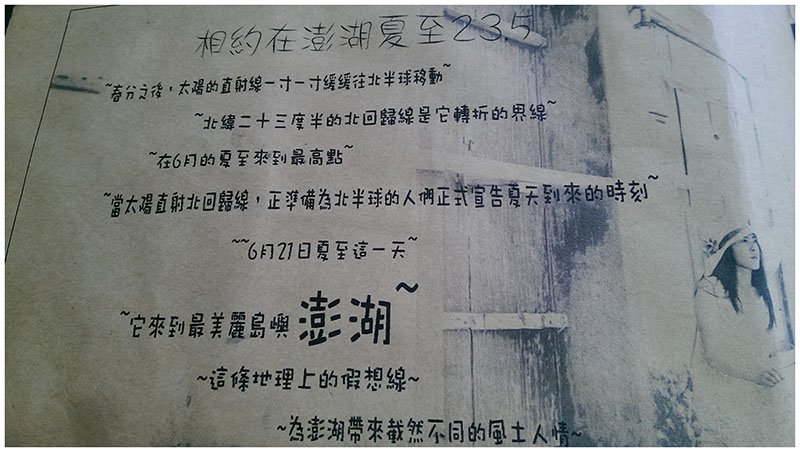 相約在澎湖夏至235
~春分之後，太陽的直射線一寸一寸緩緩往北半球移動~
~北緯二十三度半的北回歸線是它轉折的界線~
~在6月的夏至來到最高點~
~當太陽直射北回歸線，正準備為北半球的人們正式宣告夏天到來的時刻~
~~6月21日夏至這一天~
~它來到最美麗島嶼 澎湖~
~這條地理上的假想線~
~為澎湖帶來截然不同的風土人情~